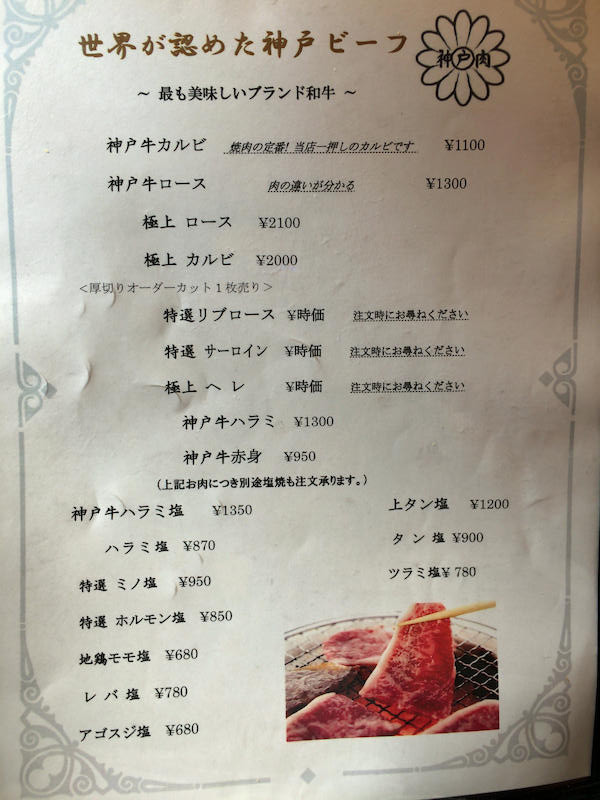 世界が認めた神戸ビーフ
神戸肉
～ 最も美味しいブランド和牛 ～
神戸牛カルビ 焼肉の定番! 当店一押しのカルビです ¥1100
神戸牛ロース 肉の違いが分かる ¥1300
極上 ロース ¥2100
極上 カルビ ¥2000
＜厚切りオーダーカット１枚売り＞
特選リブロース ¥時価 注文時にお尋ねください
特選 サーロイン ¥時価 注文時にお尋ねください
極上 ヘ レ ¥時価 注文時にお尋ねください
神戸牛ハラミ ¥1300
神戸牛赤身 ¥950
（上記お肉につき別途塩焼も注文承ります。）
神戸牛ハラミ塩 ¥1350
ハラミ塩 ¥870
特選 ミノ塩 ¥950
特選 ホルモン塩 ¥850
地鶏モモ塩 ¥680
レ バ 塩 ¥780
アゴスジ塩 ¥680
上タン塩 ¥1200
タ ン 塩 ¥900
ツラミ塩¥ 780